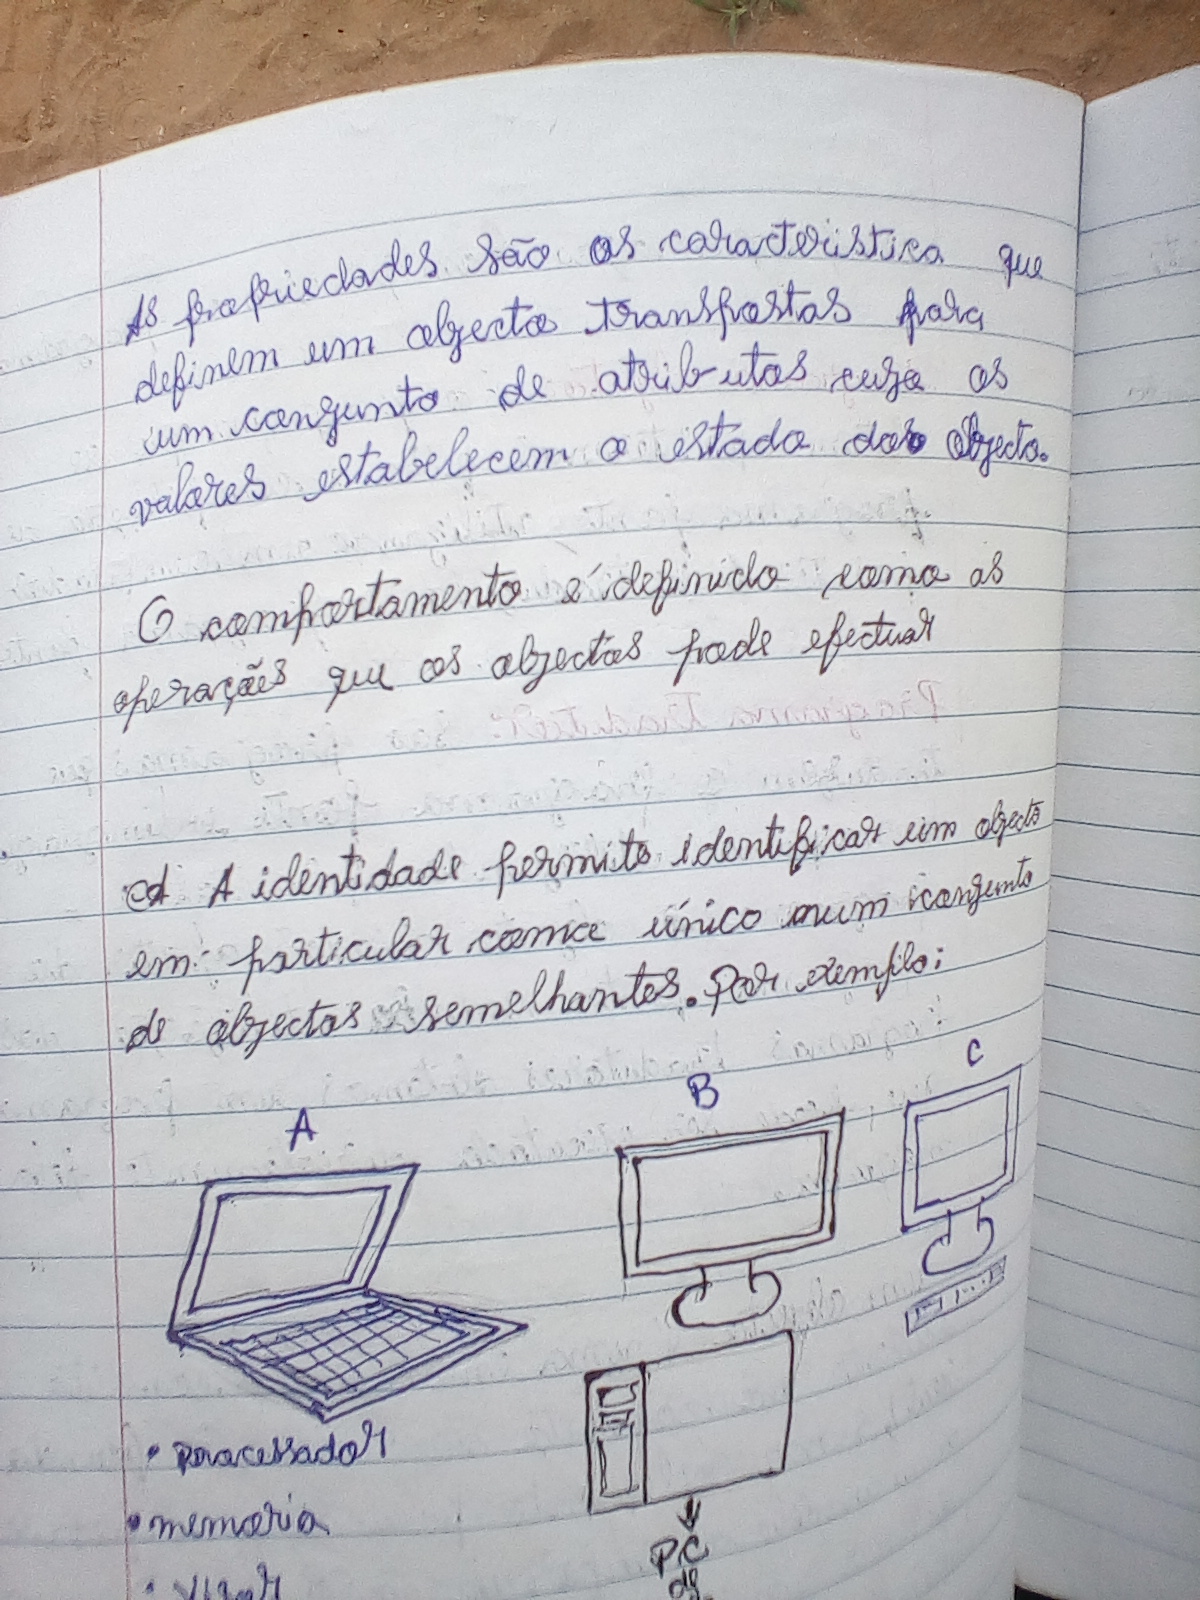 As propriedades são as caracteristica que
definem um objecto transpostas para
um conjunto de atributos cuja os
valores estabelecem o estado dos objecto.
O comportamento é definido como as
operações que os objectos pode efectuar
A identidade permite identificar um objecto
em particular como único num conjunto
de objectos semelhantes. Por exemplo:
A
B
C
• processador
• memoria
PC